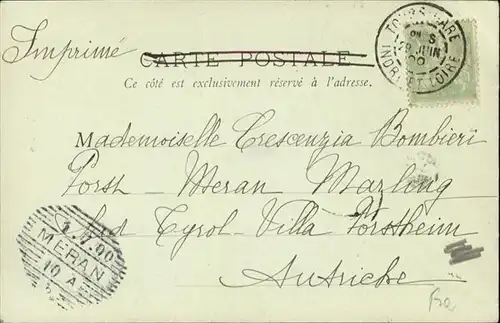 Imprimé
CARTE POSTALE
Ce côté est exclusivement réservé à l'adresse.
TOURS-GARE
28 JUIN
00
INDRE-ET-LOIRE
Mademoiselle Crescenzia Bombieri
Forst - Meran Marling
Süd Tyrol - Villa Forstheim
Autriche
1.7.00
MERAN
10 A